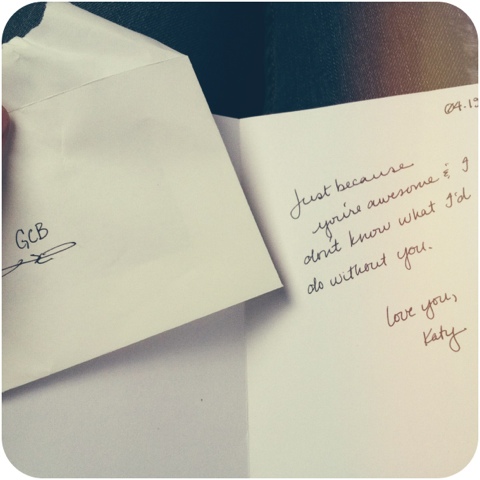 GCB
04.19
Just because
you're awesome & I
don't know what I'd
do without you.
love you,
Katy